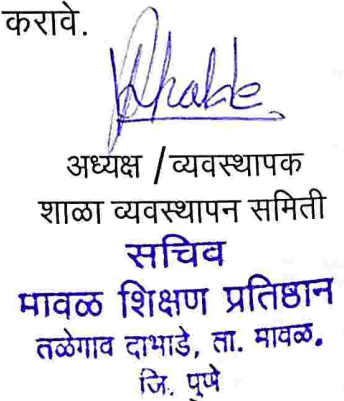 करावे.
अध्यक्ष /व्यवस्थापक
शाळा व्यवस्थापन समिती
सचिव
मावळ शिक्षण प्रतिष्ठान
तळेगाव दाभाडे, ता. मावळ.
जि. पुणे